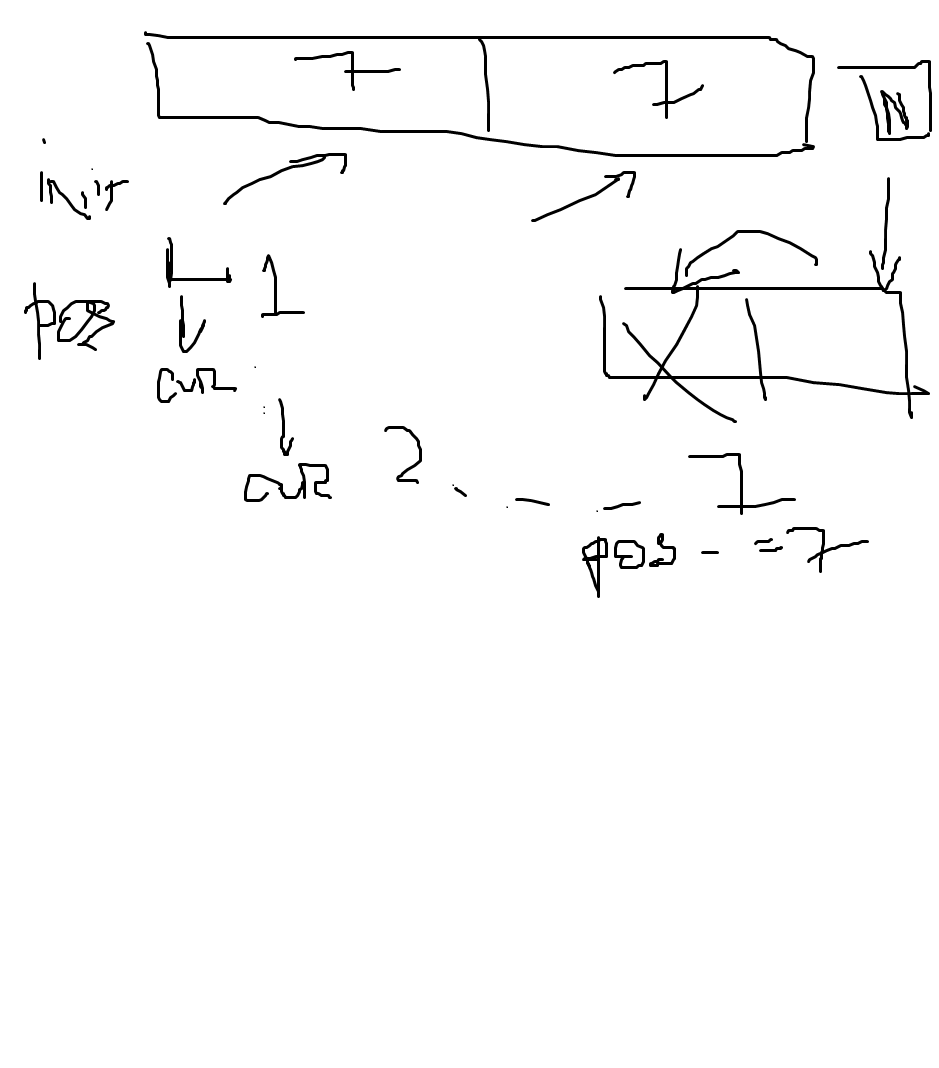 7 7 N
init
pos 1
cur
cur 2 . - - 7
pos - = 7